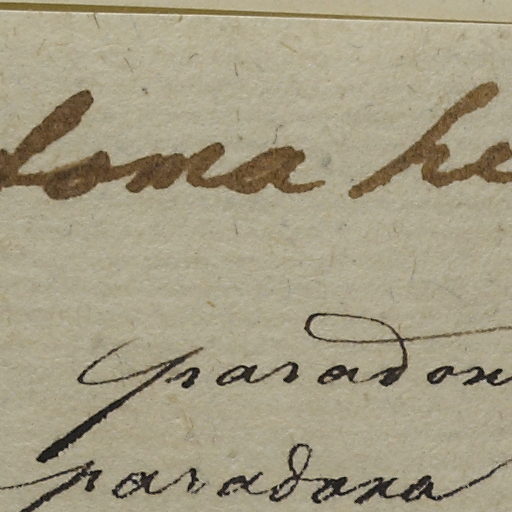 loma he
paradox
paradoxa